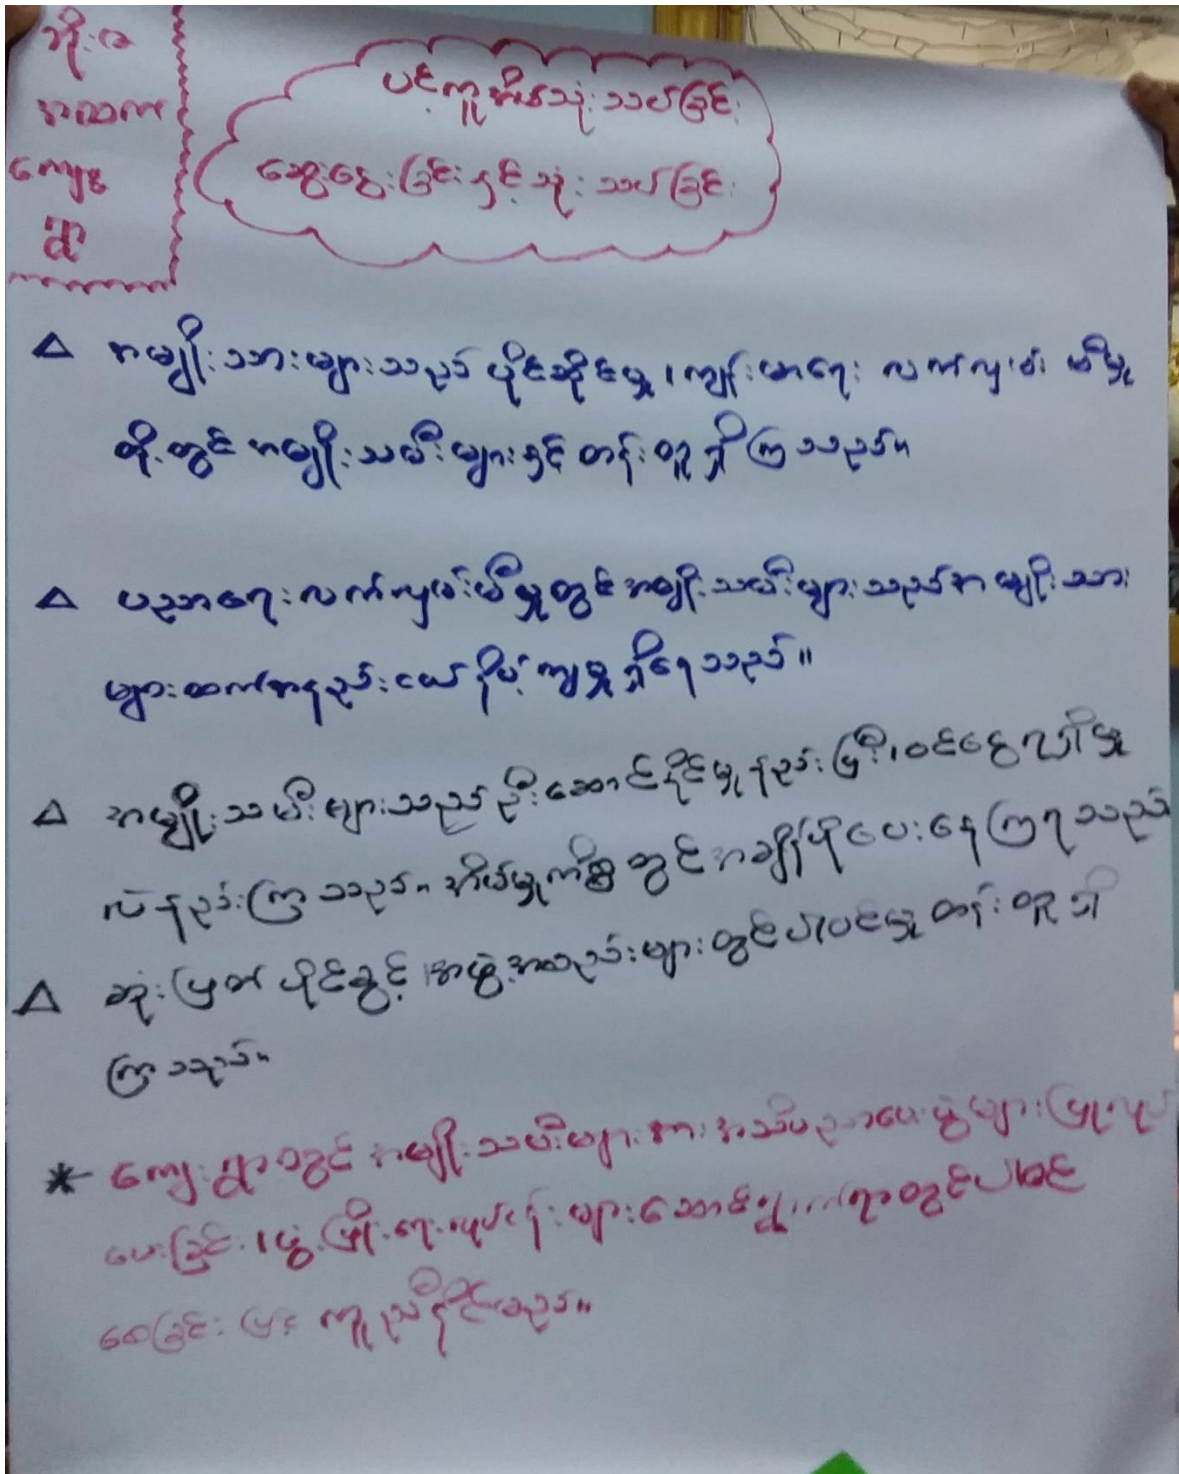 ဘိုးခ
အထက
ကျေး
ရွာ
ပင့်ကူအိမ်သုံးသပ်ခြင်း
ဆွေးနွေးခြင်းနှင့်သုံးသပ်ခြင်း
△ အမျိုးသားများသည် ပိုင်ဆိုင်မှု၊ ကျန်းမာရေး လက်လှမ်းမီမှု
တို့တွင် အမျိုးသမီးများနှင့် တန်းတူရှိကြသည်။
△ ပညာရေးလက်လှမ်းမီမှုတွင်အမျိုးသမီးများသည်အမျိုးသား
များထက်အနည်းငယ်နိမ့်ကျမှုရှိနေသည်။
△ အမျိုးသမီးများသည်ဦးဆောင်နိုင်မှုနည်းပြီး၊ဝင်ငွေရရှိမှု
လဲနည်းကြသည်။ အိမ်မှုကိစ္စတွင် အချိန်ပိုပေးနေကြရသည်
△ ဆုံးဖြတ်ပိုင်ခွင့်၊အဖွဲ့အစည်းများတွင်ပါဝင်မှုတန်းတူရှိ
ကြသည်။
* ကျေးရွာတွင် အမျိုးသမီးများအားအသိပညာပေးပွဲများပြုလုပ်
ပေးခြင်း၊ဖွံ့ဖြိုးရေးလုပ်ငန်းများဆောင်ရွက်ရာတွင်ပါဝင်
စေခြင်းဖြင့် ကူညီနိုင်မည်။